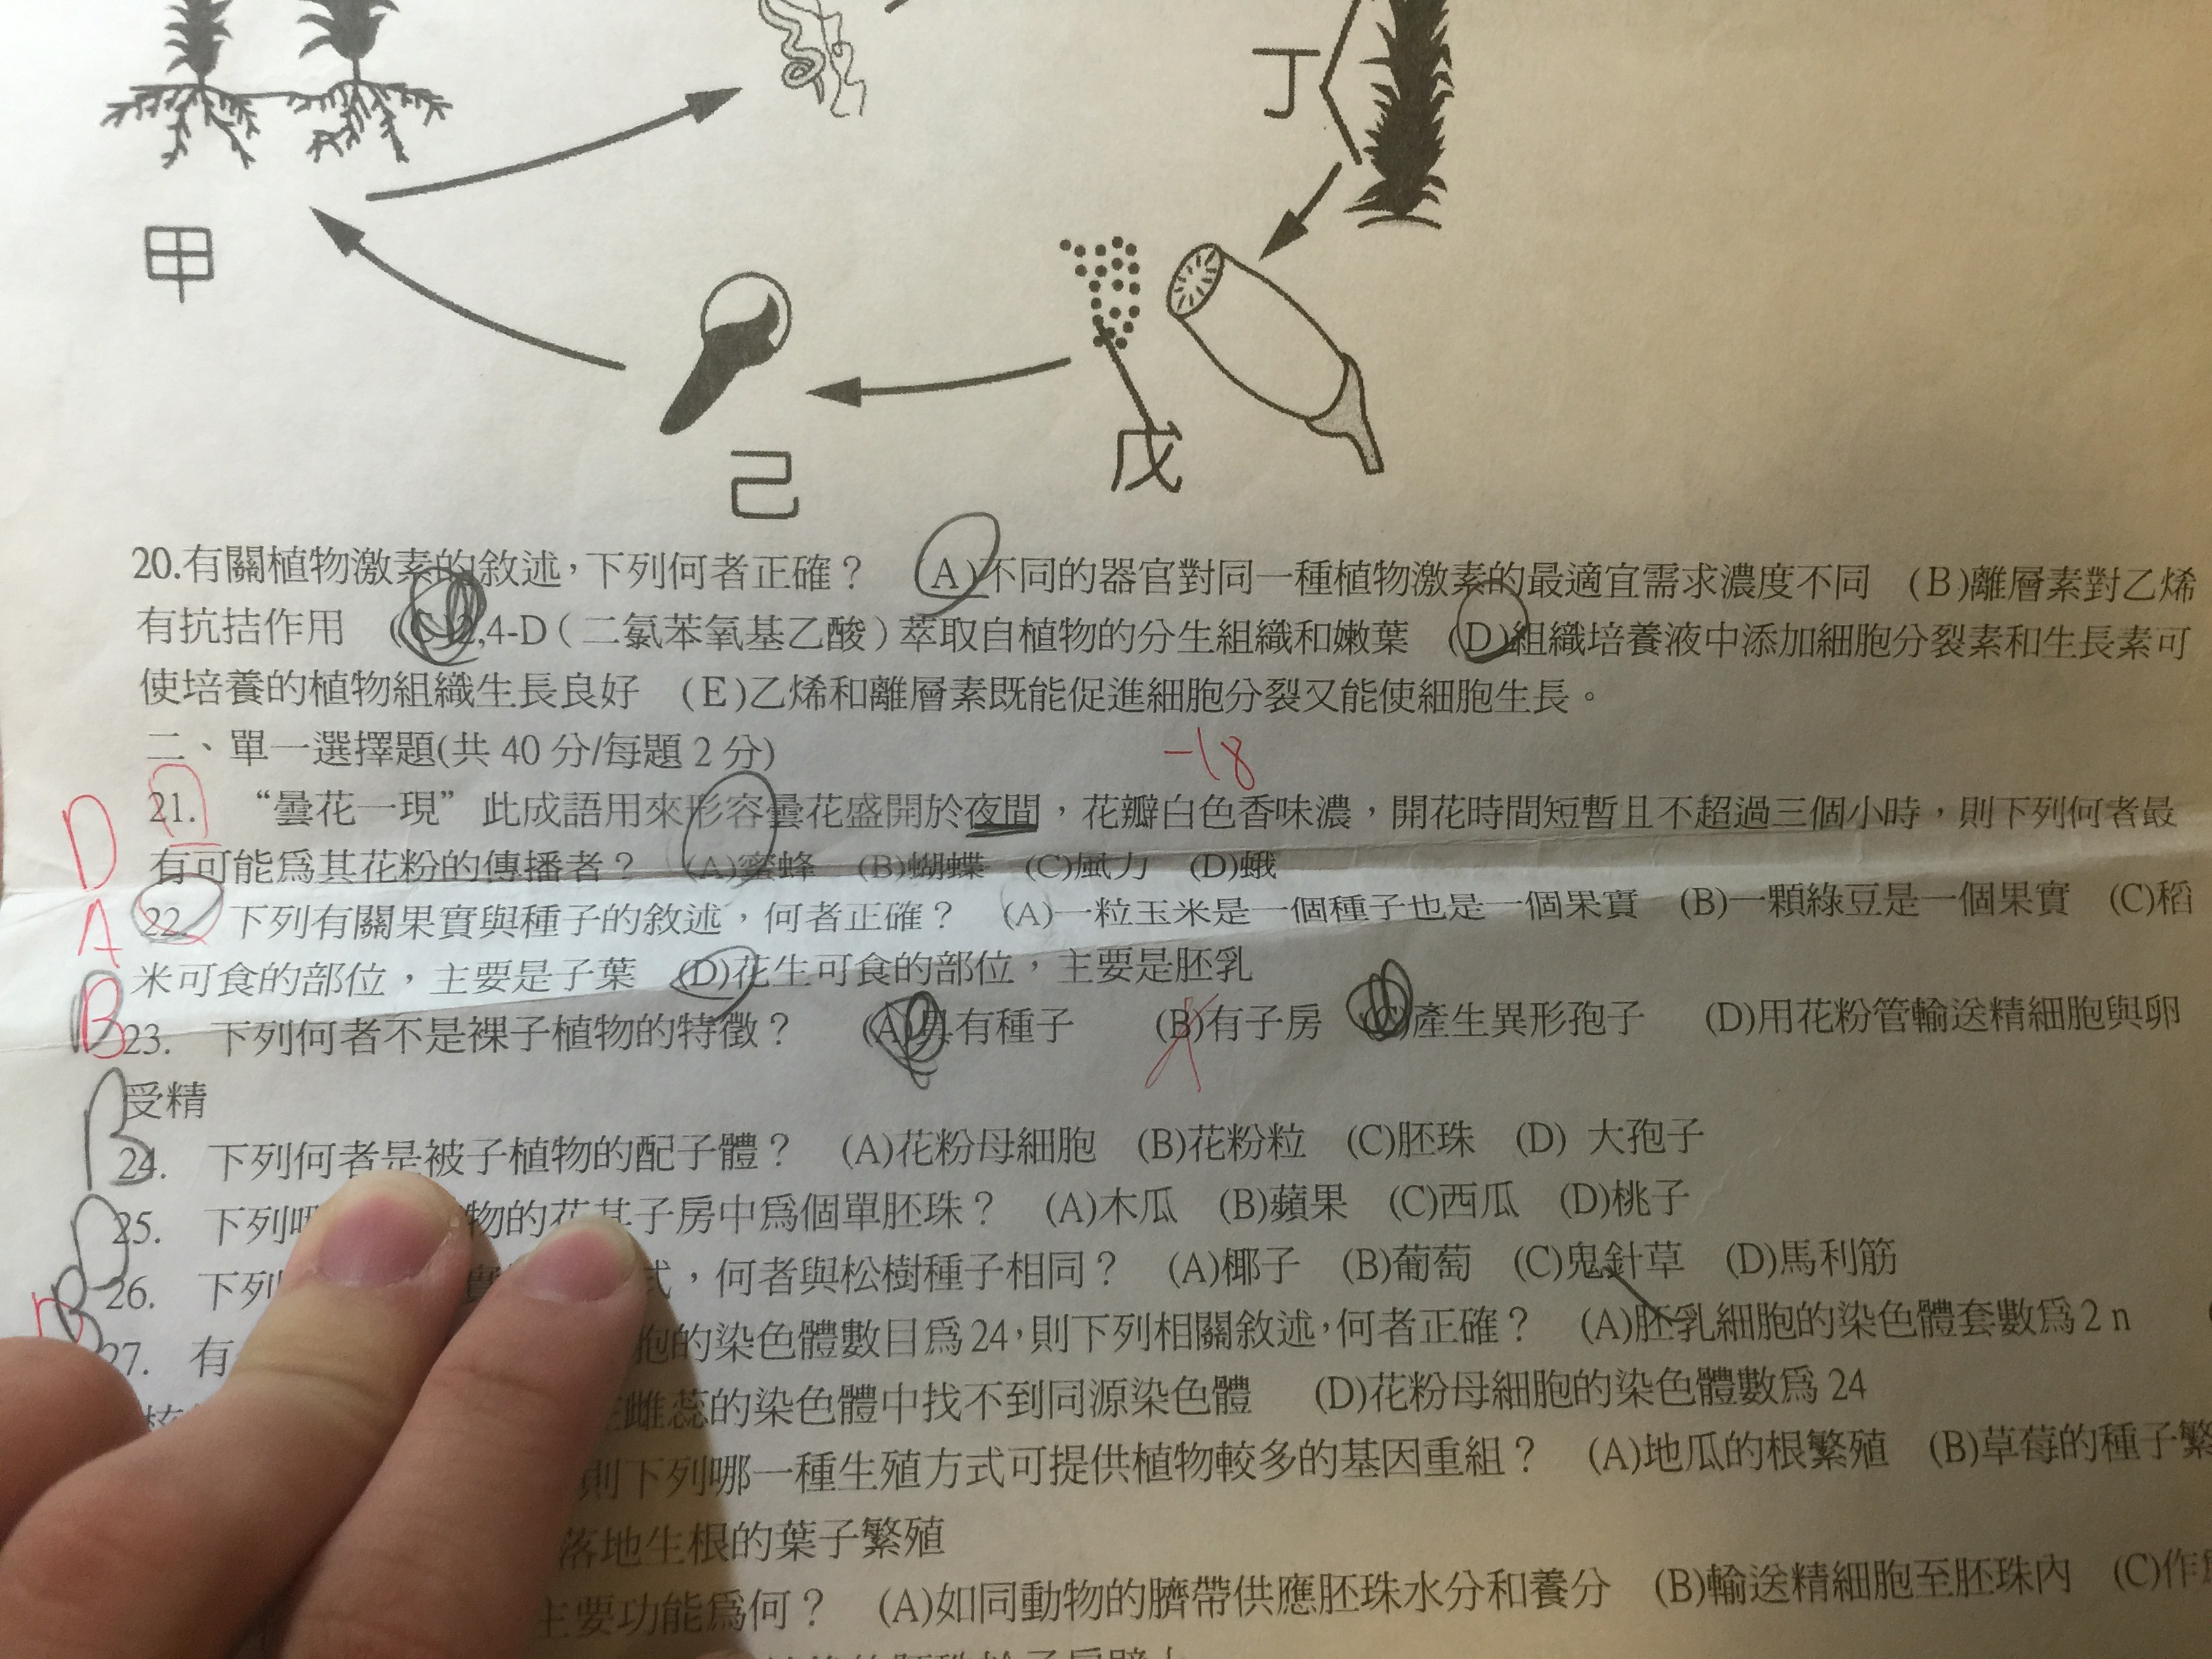 丁
甲
戊
己
20.有關植物激素的敘述,下列何者正確? (A)不同的器官對同一種植物激素的最適宜需求濃度不同 (B)離層素對乙烯
有抗拮作用 2,4-D(二氯苯氧基乙酸)萃取自植物的分生組織和嫩葉 (D)組織培養液中添加細胞分裂素和生長素可
使培養的植物組織生長良好 (E)乙烯和離層素既能促進細胞分裂又能使細胞生長。
二、單一選擇題(共 40 分/每題 2 分)
-18
D 21. “曇花一現”此成語用來形容曇花盛開於夜間,花瓣白色香味濃,開花時間短暫且不超過三個小時,則下列何者最
有可能爲其花粉的傳播者? (A)蜜蜂 (B)蝴蝶 (C)風力 (D)蛾
A 22. 下列有關果實與種子的敘述,何者正確? (A)一粒玉米是一個種子也是一個果實 (B)一顆綠豆是一個果實 (C)稻
米可食的部位,主要是子葉 (D)花生可食的部位,主要是胚乳
B 23. 下列何者不是裸子植物的特徵? (A)具有種子 (B)有子房 (C)產生異形孢子 (D)用花粉管輸送精細胞與卵
受精
B 24. 下列何者是被子植物的配子體? (A)花粉母細胞 (B)花粉粒 (C)胚珠 (D) 大孢子
D 25. 下列 物的花其子房中爲個單胚珠? (A)木瓜 (B)蘋果 (C)西瓜 (D)桃子
26. 下列 式,何者與松樹種子相同? (A)椰子 (B)葡萄 (C)鬼針草 (D)馬利筋
27. 有 胞的染色體數目爲24,則下列相關敘述,何者正確? (A)胚乳細胞的染色體套數爲2 n
雌蕊的染色體中找不到同源染色體 (D)花粉母細胞的染色體數爲 24
則下列哪一種生殖方式可提供植物較多的基因重組? (A)地瓜的根繁殖 (B)草莓的種子繁
落地生根的葉子繁殖
主要功能爲何? (A)如同動物的臍帶供應胚珠水分和養分 (B)輸送精細胞至胚珠內 (C)作